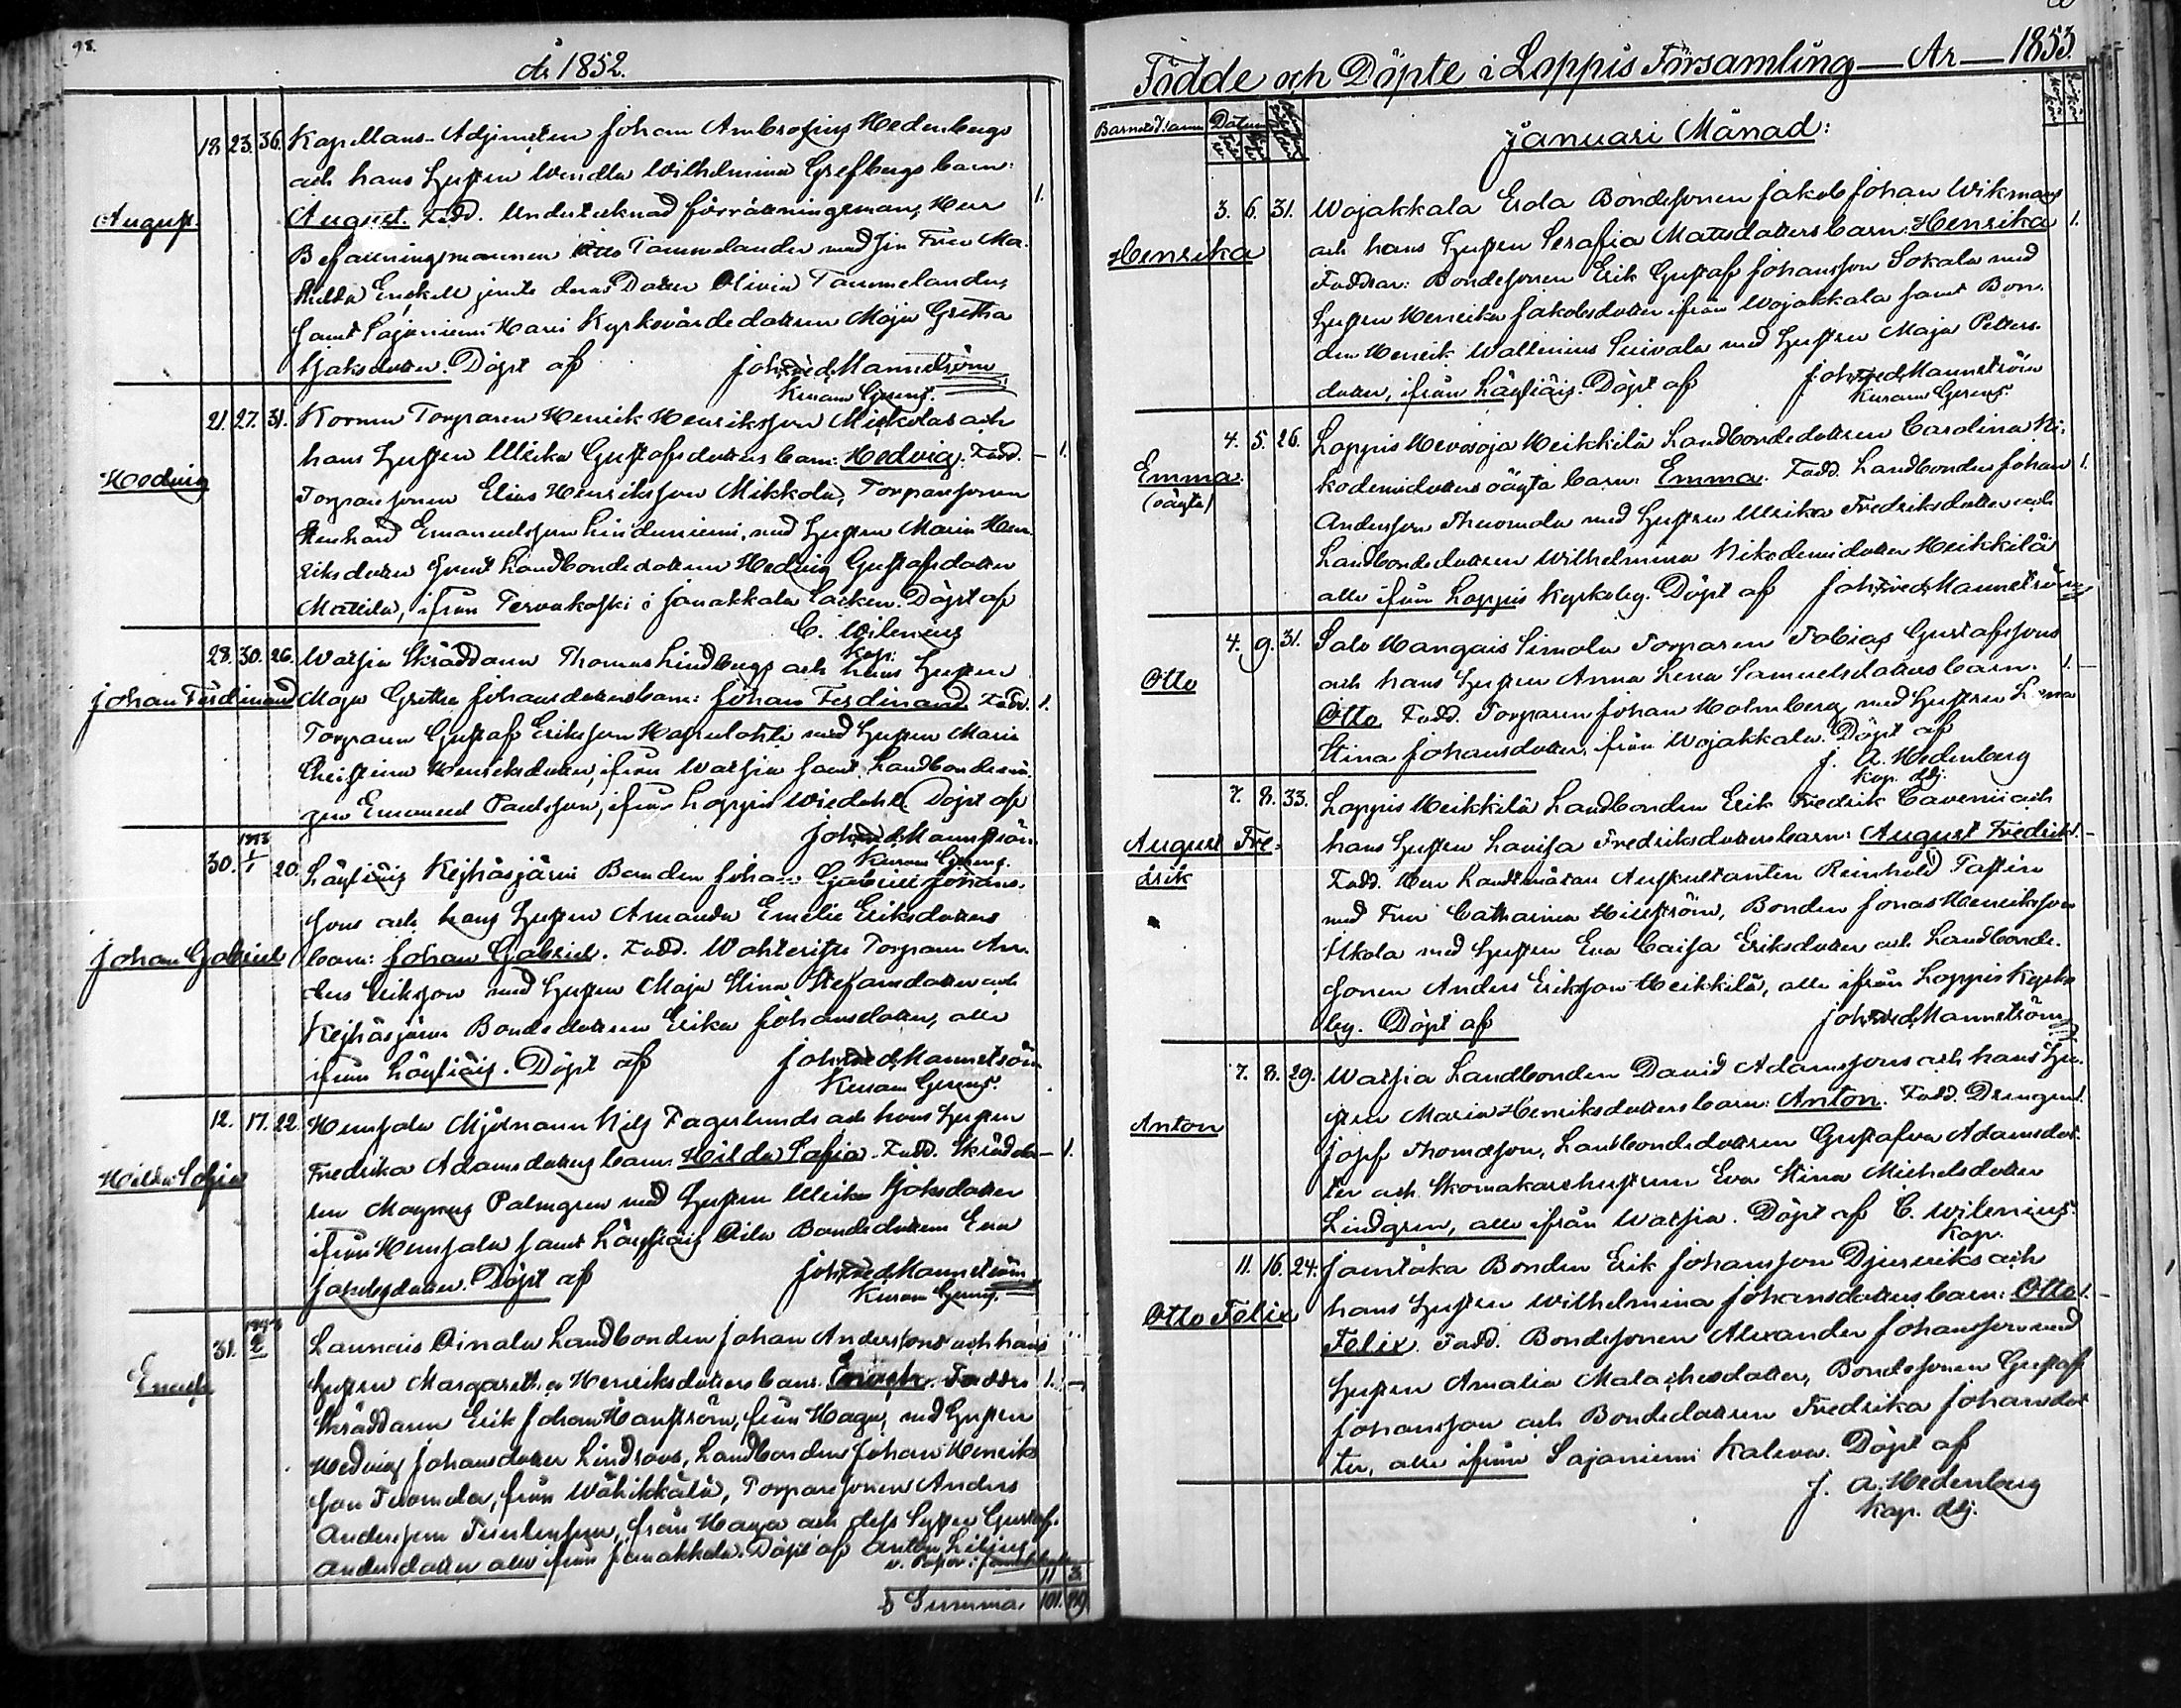 98.
År 1852.
18. 23. 36. Kapellans-Adjuncten Johan Ambrosius Hedenbergs
och hans Hustru Wendla Wilhelmina Grefbergs barn:
August. August. Fadd. Undertecknad förrättningsman, Herr 1.
Befallningsmannen Tammelander med sin Fru Ma-
thilda Enskell jemte deras Dotter Olivia Tammelander,
samt Sajaniemi Harvi Kyrkovärdedottren Maja Gretha
Isaksdotter. Döpt af Joh. Fred. Mannström
21. 27. 31. Kormu Torparen Henrik Henriksson Mikkolas och
hans Hustru Ulrika Gustafsdotters barn: Hedvig. Fadd. 1.
Hedvig
Torparesonen Elias Henriksson Mikkola, Torparesonen
Emanuelsson Linduniemi, med Hustru Maria Hen-
riksdotter samt Landbondedottren Hedvig Gustafsdotter
Mattila, ifrån Tervakoski i Janakkala Socken. Döpt af
C. Wilenius
Kap.
28. 30. 26. Watsia Skräddaren Thomas Lindbergs och hans Hustru
Johan Ferdinand Maja Gretha Johansdotters barn: Johan Ferdinand Fadd. 1.
Torparen Gustaf Eriksson Hapulahti med Hustru Maria
Christina Henriksdotter, ifrån Watsia samt Landbonde
Emanuel Paulsson, ifrån Loppis Wiedahl. Döpt af
Joh. Fred. Mannström
30. 1853 1/1 20. Läyliäis Keihäsjärvi Bonden Johan Gabriel Johans-
sons och hans Hustru Amanda Emelie Eriksdotters
Johan Gabriel barn: Johan Gabriel. Fadd. Wahteristo Torparen An-
ders Eriksson med Hustru Maja Stina Stefansdotter och
Keihäsjärvi Bondedottren Erika Johansdotter, alla
ifrån Läyliäis. Döpt af Joh. Fred. Mannström
12. 17. 22. Hunsala Mjölnaren Nils Fagerlunds och hans Hustru
Fredrika Adamsdotters barn: Hilda Sofia. Fadd. Skrädda- 1.
Hilda Sofia
ren Magnus Palmgren med Hustru Ulrika Isaksdotter
ifrån Hunsala samt Läyliäis Oila Bondedottren Eva
Jakobsdotter. Döpt af Joh. Fred. Mannström
31. 1853 Launois Oinala Landbonden Johan Anderssons och hans
Enoch Hustru Margaretha Henriksdotters barn Enoch. Faddrar 1.
Skräddaren Erik Johan Hanström, från Haga, med Hustru
Hedvig Johansdotter Lindroos, Landbonden Johan Henriks
son Tuomola, från Wähikkälä, Torparesonen Anders
Andersson, från Haga och dess Syster Gustafva
Andersdotter alla ifrån Janakkala. Döpt af Anton Lilius
v. Pastor i Janakkala
11 3.
Summa. 101.
Födde och Döpte i Loppis Församling — År — 1853.
Barnets Namn Datum
Januari Månad:
3. 6. 31. Wojakkala Erola Bondesonen Jakob Johan Wikmans
Henrika och hans Hustru Serafia Mattsdotters barn: Henrika 1.
Faddrar: Bondesonen Erik Gustaf Johansson Sokala med
Hustru Henrika Jakobsdotter ifrån Wojakkala samt Bon-
den Henrik Wallenius Suivala med Hustru Maja Petters-
dotter, ifrån Läyliäis. Döpt af Joh. Fred. Mannström
4. 5. 26. Loppis Hevosoja Heikkilä Landbondedottren Carolina Ni-
Emma (oägta) kodemidotters oägta barn: Emma. Fadd. Landbonden Johan 1.
Andersson Thuomola med Hustru Ulrika Fredriksdotter och
Landbondedottren Wilhelmina Nikodemidotter Heikkilä
alla ifrån Loppis Kyrkoby. Döpt af Joh. Fred. Mannström
4. 9. 31. Salo Hangais Simola Torparen Tobias Gustafssons
Otto och hans Hustru Anna Lena Samuelsdotters barn. 1.
Otto Fadd. Torparen Johan Holmberg med Hustru Lena
Stina Johansdotter, från Wojakkala. Döpt af
J. A. Hedenberg
Kap. Adj.
7. 8. 33. Loppis Heikkilä Landbonden Erik Fredrik Cavenii och
August Fre-drik hans Hustru Lovisa Fredriksdotters barn: August Fredrik 1.
Fadd. Herr Landtmätare Auskultanten Reinhold Tastin
med Fru Catharina Hillström, Bonden Jonas Henriksson
Ukola med Hustru Eva Caisa Eriksdotter och Landbonde-
sonen Anders Eriksson Heikkilä, alla ifrån Loppis Kyrko
by. Döpt af Joh. Fred. Mannström
7. 8. 29. Watsia Landbonden David Adamssons och hans Hu-
Anton stru Maria Henriksdotters barn: Anton. Fadd. Drengen 1.
Josef Thomasson, Landbondedottren Gustafva Adamsdot-
ter och Skomakarehustrun Eva Stina Michelsdotter
Lindgren, alla ifrån Watsia. Döpt af C. Wilenius.
Kap.
11. 16. 24. Jaentaka Bonden Erik Johansson Djurviks och
Otto Felix hans Hustru Wilhelmina Johansdotters barn: Otto 1.
Felix. Fadd. Bondesonen Alexander Johansson med
Hustru Amalia Malachesdotter, Bondesonen Gustaf
Johansson och Bondedottren Fredrika Johansdot
ter, alla ifrån Sajaniemi Kaleva. Döpt af
J. A. Hedenberg
Kap. Adj.